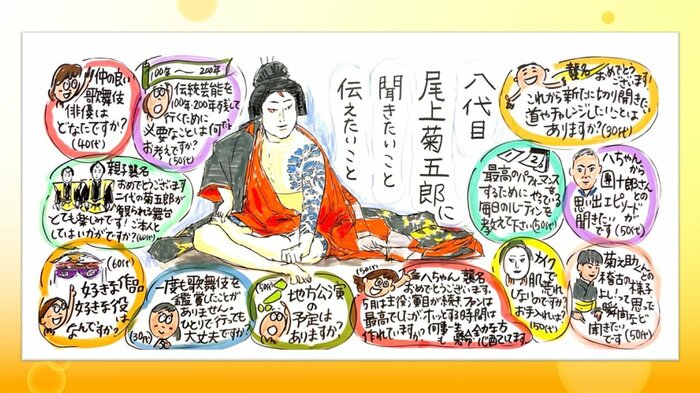 八代目
尾上菊五郎に
聞きたいこと
伝えたいこと
仲の良い
歌舞伎
俳優は
どなたですか?
(40代)
100年〜200年
伝統芸能を
100年・200年残して
行くために
必要なことは何だと
お考えですか?
(50代)
襲名
おめでとう
ございます!
これから新たに切り開きたい
道やチャレンジしたいことは
ありますか?(30代)
親子襲名
おめでとうございます
二代の菊五郎が
観られる舞台
とても楽しみです!ご本人と
してはいかがですか?(60代)
最高のパフォーマンス
をするために行っている
毎日のルーティンを
教えて下さい(50代)
八ちゃんから
團十郎さん
との
思い出エピソードが
聞きたい
です(50代)
(60代)
好きな作品
好きな役
は
なんですか?
一度も歌舞伎を
鑑賞したことが
ありません。
ひとりで行っても
大丈夫ですか?
(30代)
(50代)
地方公演
の
予定は
ありますか?
(50代)
八ちゃん 襲名
おめでとうございます。
5月は主役、演目が続き、ファンは
最高でしたがホッとする時間は
作れていますか?
メイク
で肌荒れ
しないのですか?
お手入れは?
(50代)
菊之助さん
との
稽古の様子
上達したって思った
瞬間など
聞きたい
です(50代)